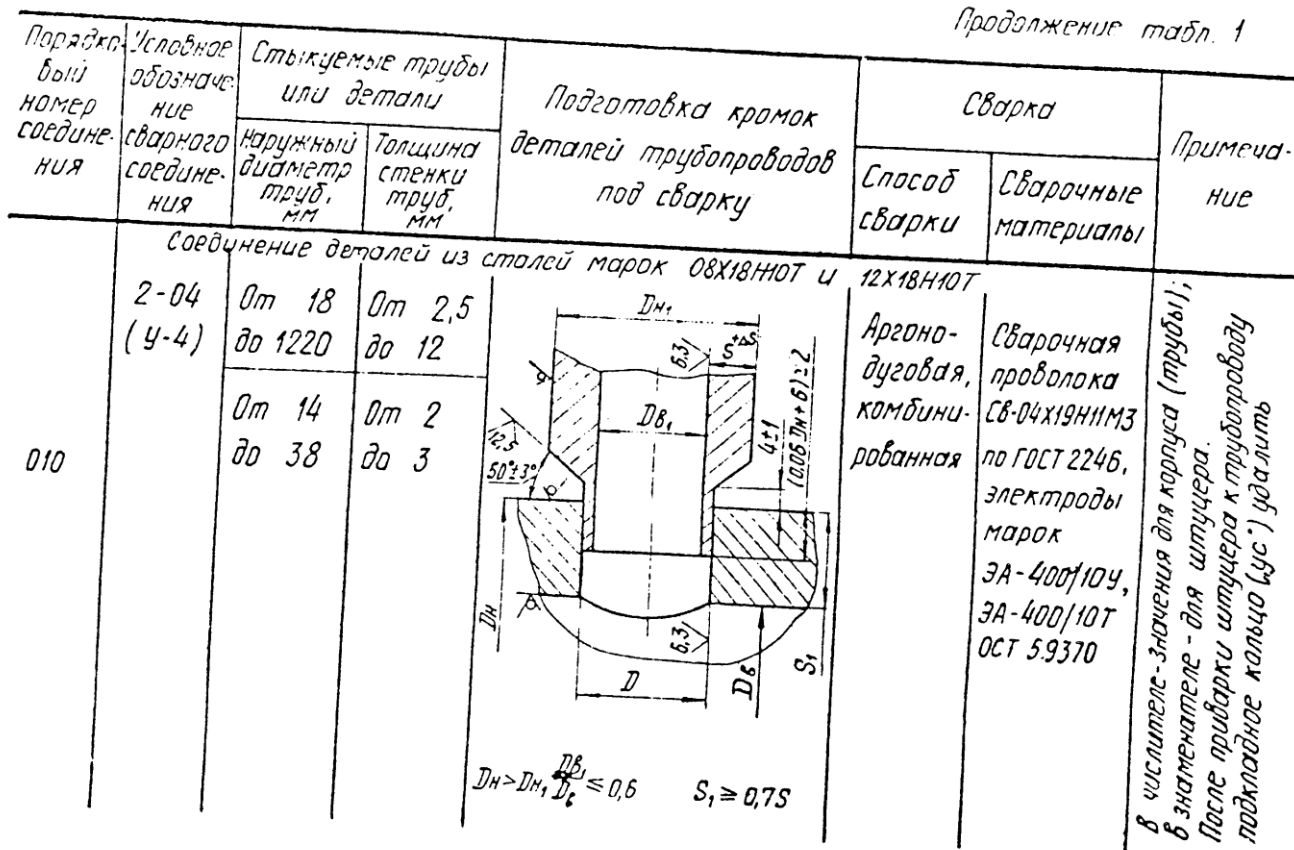 Продолжение табл. 1
Порядко-
вый
номер
соедине-
ния
Условное
обозначе-
ние
сварного
соедине-
ния
Стыкуемые трубы
или детали
Наружный
диаметр
труб,
мм
Толщина
стенки
труб,
мм
Подготовка кромок
деталей трубопроводов
под сварку
Сварка
Способ
сварки
Сварочные
материалы
Примеча-
ние
Соединение деталей из сталей марок 08Х18Н10Т и 12Х18Н10Т
010
2-04
(У-4)
От 18
до 1220
От 2,5
до 12
От 14
до 38
От 2
до 3
Dн₁
6,3
S+ΔS
Dв₁
12,5
50°±3°
4±1
(0,06Dн+6)±2
Dн
6,3
D
Dв
S₁
Dн>Dн₁ Dв₁/Dв ≤ 0,6 S₁ ≥ 0,7S
Аргоно-
дуговая,
комбини-
рованная
Сварочная
проволока
Св-04Х19Н11М3
по ГОСТ 2246,
электроды
марок
ЭА-400/10У,
ЭА-400/10Т
ОСТ 5.9370
В числителе-значения для корпуса (трубы);
в знаменателе - для штуцера.
После приварки штуцера к трубопроводу
подкладное кольцо („ус“) удалить